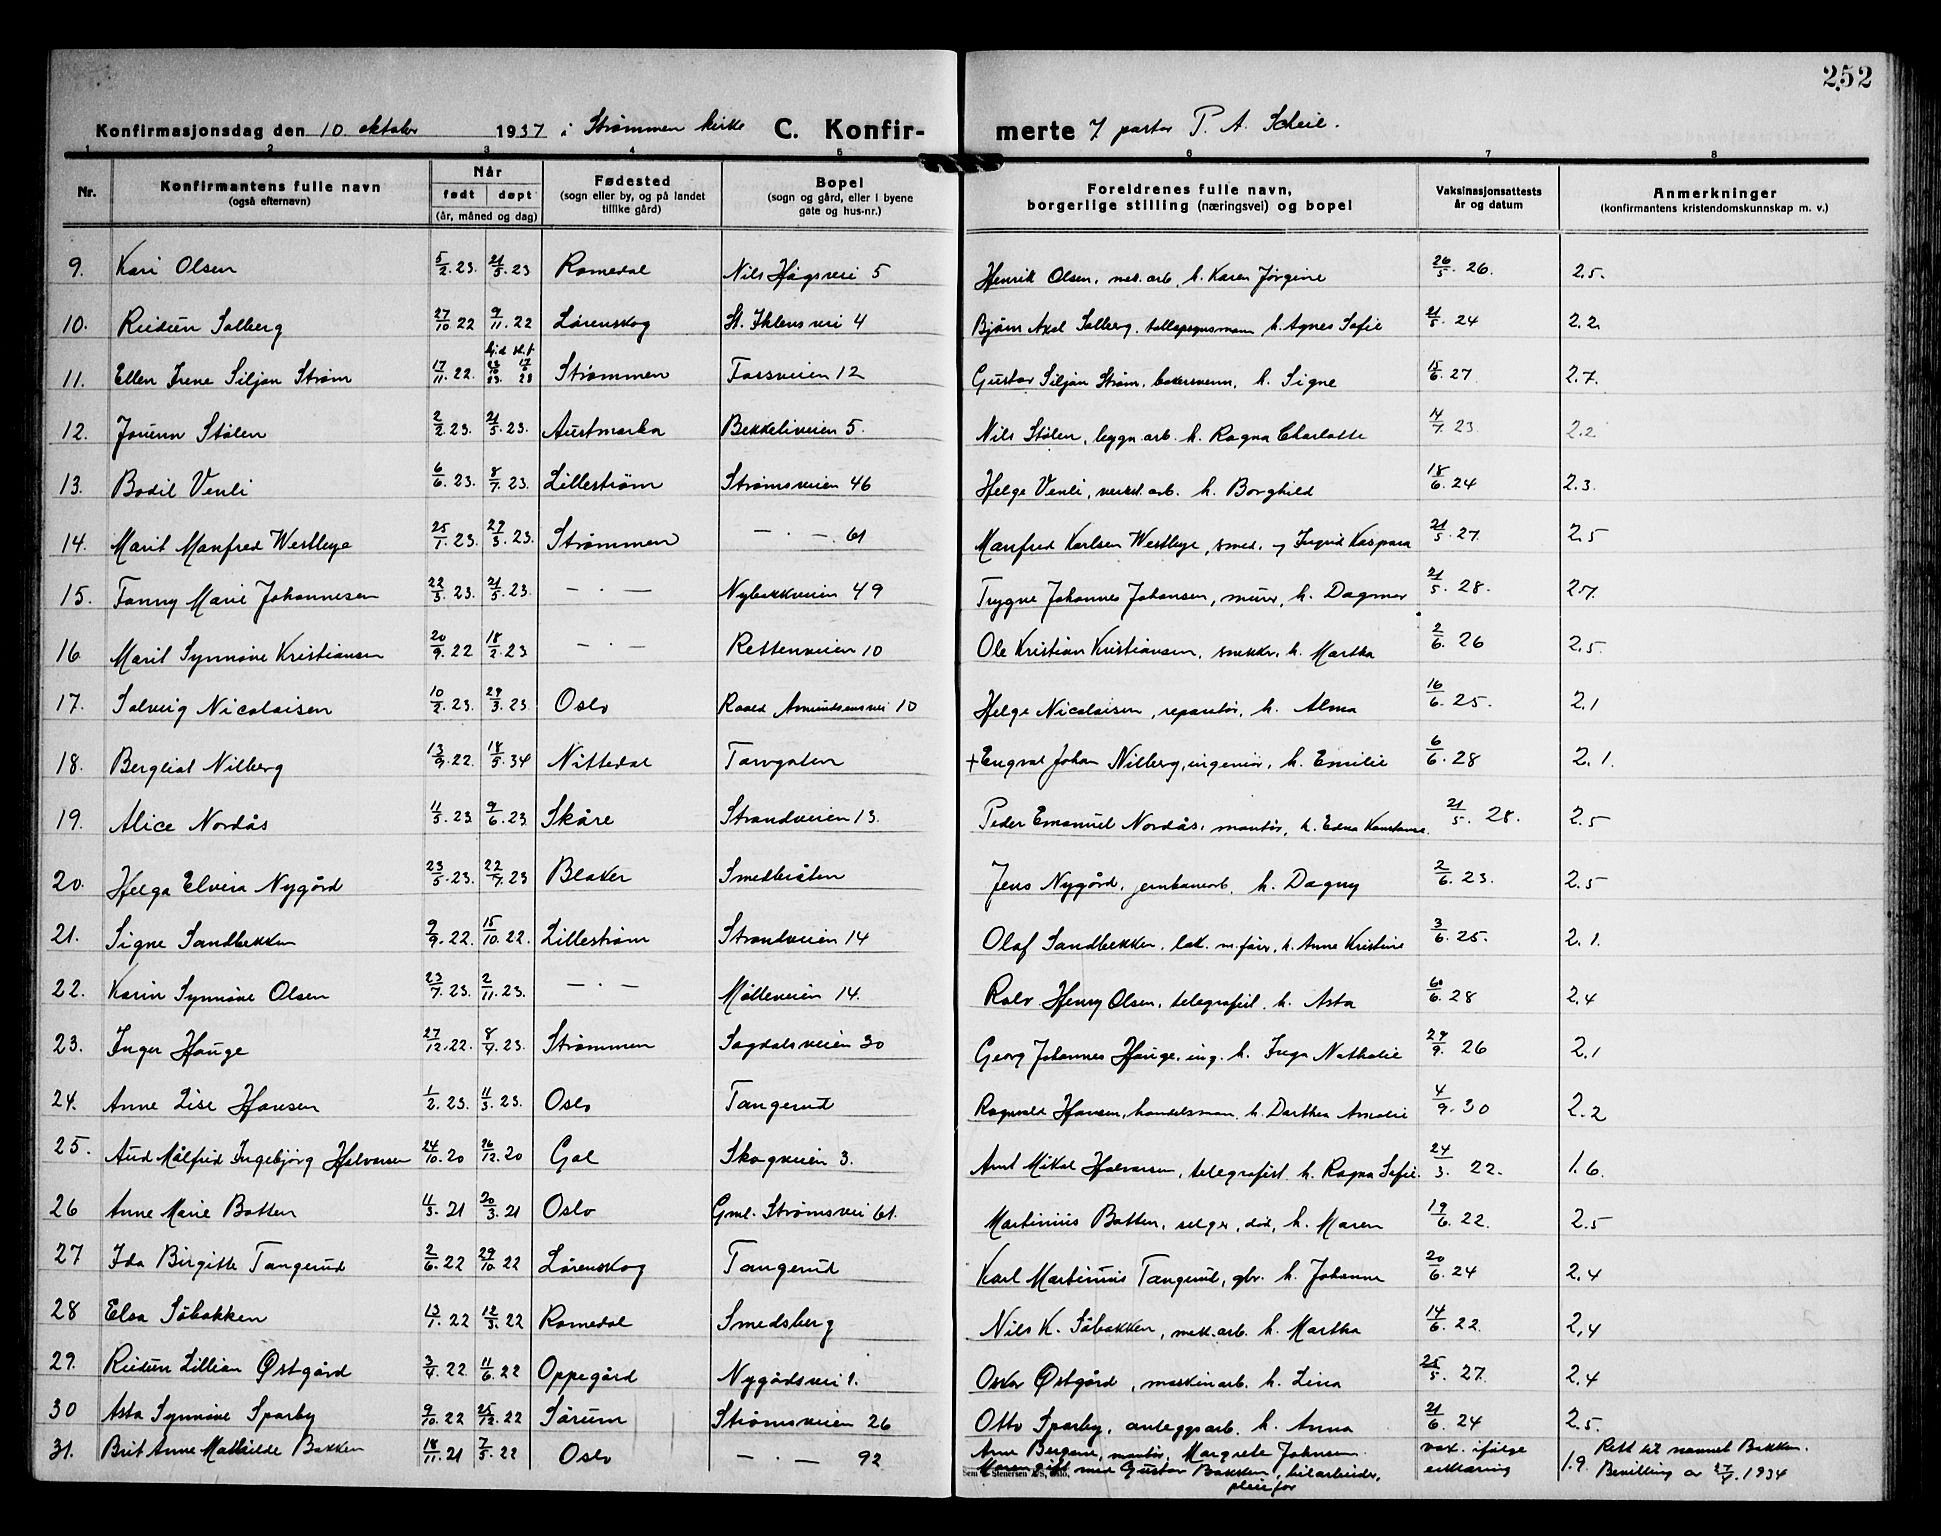 252
Konfirmasjonsdag den 10 oktober 1937 i Strømmen kirke C. Konfir- merte 7 pastor P. A. Scheie.
1 2 3 4 5 6 7 8
Nr. Konfirmantens fulle navn (også efternavn) Når født døpt (år, måned og dag) Fødested (sogn eller by, og på landet tillike gård) Bopel (sogn og gård, eller i byene gate og hus-nr.) Foreldrenes fulle navn, borgerlige stilling (næringsvei) og bopel Vaksinasjonsattests år og datum Anmerkninger (konfirmantens kristendomskunnskap m. v.)
9. Kari Olsen 5/2.23. 21/5.23 Romedal Nils Hågsvei 5 Henrik Olsen, mek. arb, h. Karen Jørgine 26/5.26. 2.5.
10. Reidun Solberg 27/10 22 9/11.22 Lørenskog St. Ihlensvei 4 Bjørn Axel Solberg, h. Agnes Sofie 21/5.24 2.2
11. Ellen Irene Siljan Strøm 17/11.22. Strømmen Fossveien 12 Gustav Siljan Strøm, bakersvenn, h. Signe 15/6.27 2.7.
12. Jorunn Stølen 2/2.23. 21/5.23. Austmarka Bekkeliveien 5. Nils Stølen, bygn. arb. h. Ragna Charlotte 4/7 23 2.2
13. Bodil Venli 6/6.23. 8/7.23. Lillestrøm Strømsveien 46 Helge Venli, verkst. arb. h. Borghild 18/6.24 2.3.
14. Marit Manfred Westleye 25/1.23. 29/3.23. Strømmen — . — . 61 Manfred Karlsen Westleye, smed, og Ingrid Kaspara 21/5.27. 2.5
15. Fanny Marie Johannesen 22/3.23. 21/5.23. — . — Nybakkveien 49 Trygve Johannes Johansen, murer, h. Dagmar 21/5.28. 2.7.
16 Marit Synnøve Kristiansen 20/9.22 18/2.23 — . — Rettenveien 10 Ole Kristian Kristiansen, snekker, h. Martha 2/6.26 2.5.
17. Solveig Nicolaisen 10/2.23. 29/3.23. Oslo Roald Amundsensvei 10 Helge Nicolaisen, reparatør, h. Alma 16/6.25. 2.1
18. Bergliot Nilberg 13/9.22. 18/5.34 Nittedal Torvgaten + Engvald Johan Nilberg, ingeniør, h. Emilie 6/6.28 2.1.
19. Alice Nordås 11/5.23 9/6.23 Skåre Strandveien 13. Peder Emanuel Nordås, montør, h. Edna Konstanse. 21/5.28. 2.5
20. Helga Elvira Nygård 23/5.23. 22/7.23 Blaker Smedbråten Jens Nygård, jernbanearb, h. Dagny 2/6.23. 2.5
21. Signe Sandbekken 9/9.22. 15/10.22. Lillestrøm Strandveien 14 Olaf Sandbekken, lok. m. fører, h. Anne Kristine 3/6.25. 2.1.
22. Karin Synnøve Olsen 23/7.23. 2/11.23. — . — Mølleveien 14. Rolv Henry Olsen, telegrafist. h. Asta 6.28 2.4
23. Inger Hauge 27/12.22. 8/4.23. Strømmen Sagdalsveien 30 Georg Johannes Hauge, ing. h. Inga Nathalie 29/9.26 2.1
24. Anne Lise Hansen 1/2.23. 11/3.23. Oslo Tangerud Ragnvald Hansen, handelsmann, h. Dorthea Amalie 4/9.30 2.2
25. Aud Målfrid Ingebjørg Halvorsen 24/10.20 26/12.20 Gol Skogveien 3. Arnt Mikal Halvorsen, telegrafist h. Ragna Sofie. 24/3. 22. 1.6.
26 Anne Marie Botten 4/3.21 20/3.21 Oslo Gml. Strømsvei 61. Martinius Botten, selger, død, h. Maren 19/6.22. 2.5
27 Ida Birgitte Tangerud 2/6.22 29/10 22 Lørenskog Tangerud Karl Martinius Tangerud, gbr. h. Johanne 20/6.24 2.4
28 Elsa Såbakken 13/1.22 12/3.22 Romedal Smedsberg Nils K. Såbakken, mek. arb. h. Martha 14/6.22. 2.4
29. Reidun Lillian Østgård 3/4.22. 11/6.22 Oppegård Nygårdsvei 1. Oskar Østgård, maskinarb. h. Lina 25/5.27. 2.4
30 Asta Synnøve Sparby 9/10.22 25/12.22 Sørum Strømsveien 26 Otto Sparby, anleggsarb. h. Anna 21/6.24 2.5.
31. Brit Anne Mathilde Bakken 18/11.21 7/5.22 Oslo — . — 92 Arne Bergane, montør, Margrete Johnsen. vax. ifølge erklæring 1.9. Rett til navnet Bakken.
Moren gift med Gustav Bakken, bilarbeider, pleiefar Bevilling av 27/4.1934